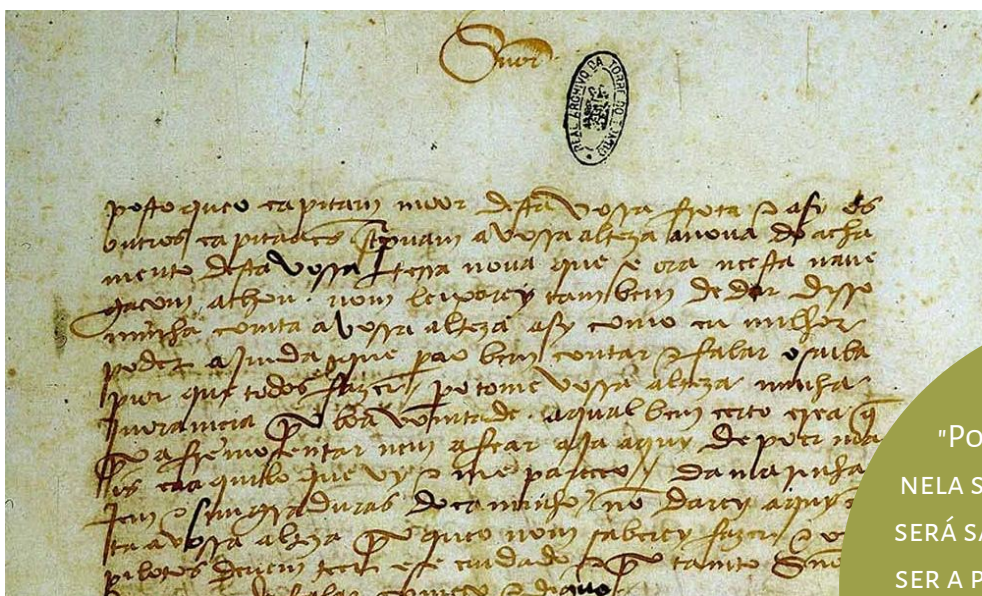 Snor
REAL ARCHIVO DA TORRE DO TOMBO
posto queo capitam moor desta vossa frota e asy os
outros capitaães screpuam avossa alteza anoua do acha
mento desta vossa terra noua que se ora neesta naue
gaçom achou. nom leixarey tambem de dar disso
minha comta avossa alteza asy como eu milhor
poder ajmda que pera o bem contar e falar o saiba
pior que todos fazer. pero tome vossa alteza minha
jnoramçia por boa vomtade. aqual bem certo crea q̃
por afremosentar nem afear aja aquy de poer ma
is caa aquilo que vy e me pareceo / da marinha
jem e simgraduras do caminho nõ darey aquy
ta avossa alteza por queo nom saberey fazer e
pilotos deuem teer ese cuidado e por tanto Snor
falar começo e diguo
"PO
NELA S
SERÁ SA
SER A P